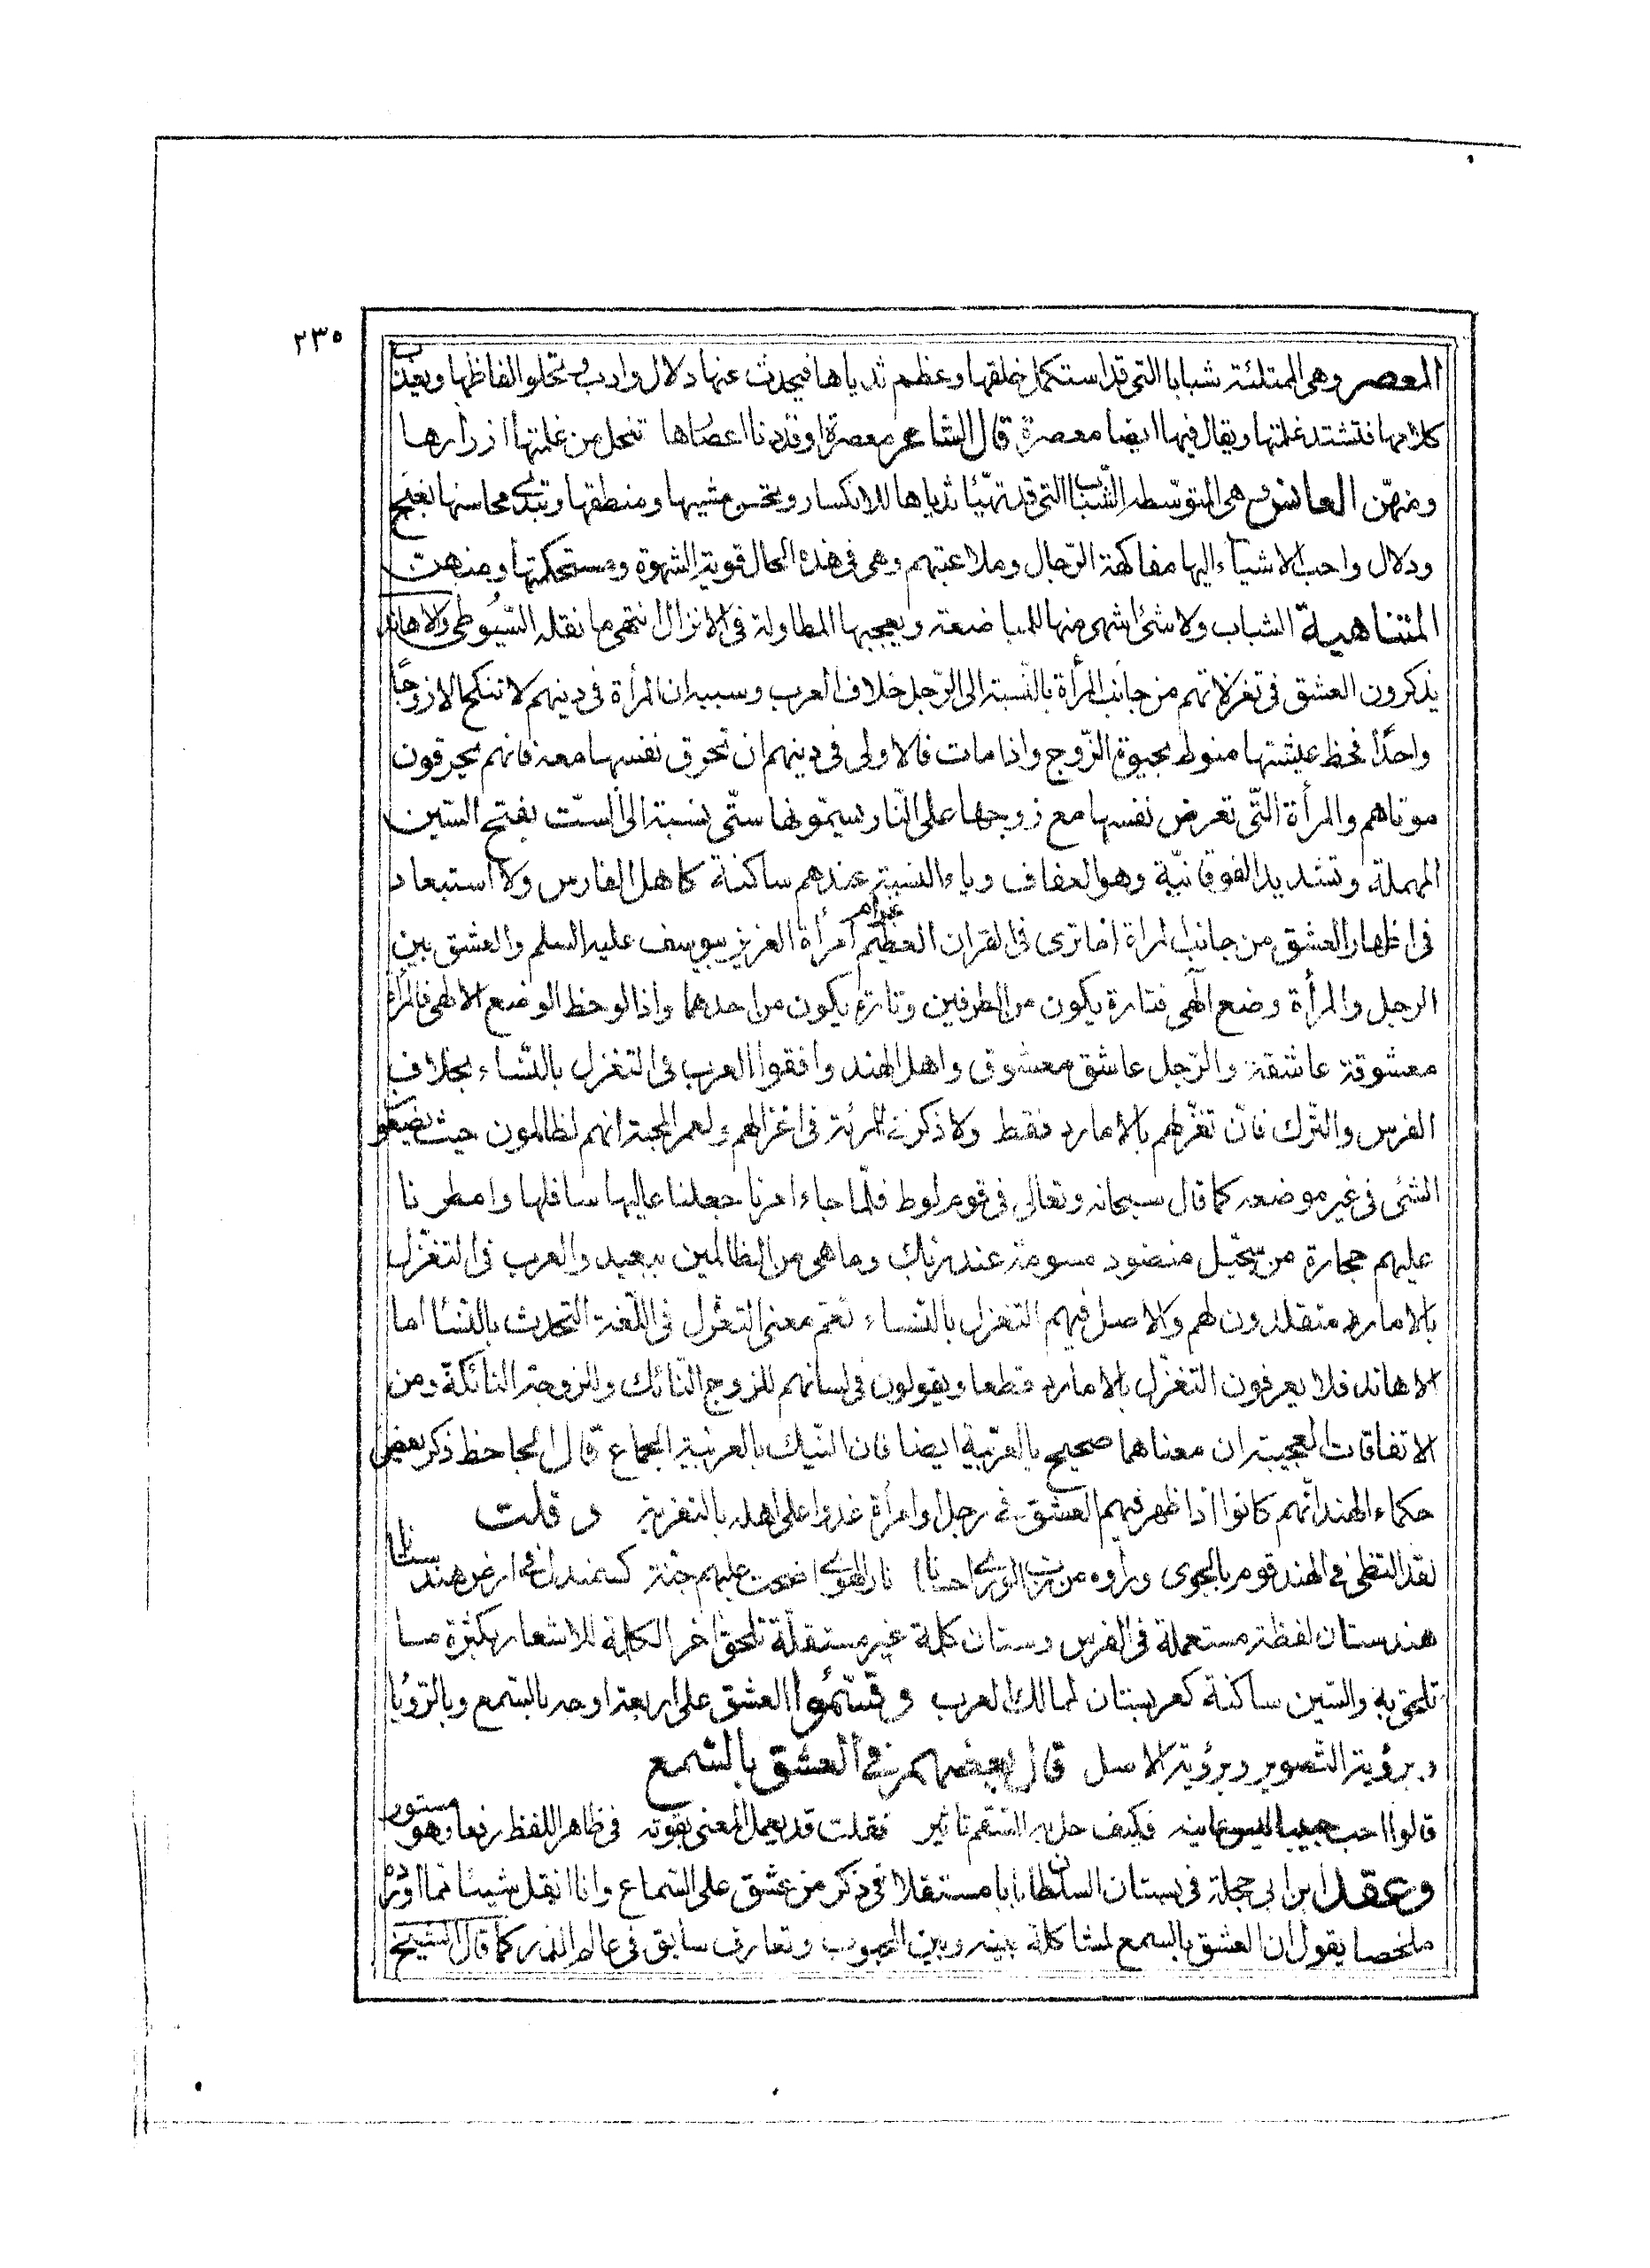 ٢٣٥
المعصر وهى الممتلئة شبابا التى قد استكمل خلقها وعظم ثدياها فيحدث عنها دلال وادب وتحلو الفاظها ويعذب
كلامها فتشتد غلمتها ويقال فيها ايضا معصرة قال الشاعر معصرة او قد دنا اعصارها تنحل من غلمتها ازرارها
ومنهن العانس وهى المتوسطه الشباب التى قد تهيّئا ثدياها للانكسار ويحسن مشيها ومنطقها وتبدى محاسنها بغنج
ودلال واحب الاشياء اليها مفاكهة الرّجال وملاعبتهم وهى فى هذه الحال قوية الشهوة ومستحكمتها ومنهن
المتناهية الشباب ولا شئ اشهى منها للمباضعة ويعجبها المطاولة فى الانزال انتهى ما نقله السّيوطى والاهاند
يذكرون العشق فى تغزلاتهم من جانب المرأة بالنّسبة الى الرّجل خلاف العرب وسببه ان المرأة فى دينهم لا تنكح الا زوجًا
واحدًا فحظ عيشتها منوط بحيوة الزّوج واذا مات فالاولى فى دينهم ان تحرق نفسها معه فانهم يحرقون
موتاهم والمرأة الّتى تعرض نفسها مع زوجها على النّار سيمّونها ستّى نسبة الى السّت بفتح السّين
المهملة وتشديد الفوقانيّة وهو العفاف وياء النسبة عندهم ساكنة كاهل الفارس ولا استبعاد
فى اظهار العشق من جانب المراة اما ترى فى القران العظيم غرام امرأة العزيز بيوسف عليه السلم والعشق بين
الرجل والمرأة وضع آلهى فتارة يكون من الطرفين وتارة يكون من احدهما واذا لوحظ الوضع الالهى فالمرأة
معشوقة عاشقة والرّجل عاشق معشوق واهل الهند وافقوا العرب فى التغزل بالنّساء بخلاف
الفرس والتّرك فانّ تغزّلهم بالامارد فقط ولا ذكر للمرئة فى اغزالهم ولعمر المحبة انهم لظالمون حيث يضيعو
الشئ فى غير موضعه كما قال سبحانه وتعالى فى قوم لوط فلمّا جاء امرنا جعلنا عاليها سافلها وامطرنا
عليهم حجارة من سجّيل منضود مسومة عند ربك وما هى من الظالمين ببعيد والعرب فى التغزّل
بالامارد متقلدون لهم والاصل فيهم التغزل بالنّساء نعم معنى التغزّل فى اللّغة التحدث بالنسا اما
الاهاند فلا يعرفون التغزّل بالامارد قطعا ويقولون فى لسانهم للزوج النّائك وللزوجة النائكة ومن
الاتفاقات العجيبة ان معناهما صحيح بالعربّية ايضا فان النّيك بالعربية الجماع قال الجاحظ ذكر بعض
حكماء الهند انّهم كانوا اذا ظهر فيهم العشق فى رجل او امرأة غدوا على اهله بالتعزية وقلت
لقد التظى فى الهند قوم بالجوى وراوه من الورى احسانا نار الهوى اضحت عليهم جنة كسمندل فى ارض هندستانا
هندستان لفظة مستعملة فى الفرس وستان كلمة غير مستقلّة تلحق اخر الكلمة للاشعار بكثرة ما
تلحق به والسّين ساكنة كعربستان لممالك العرب وقسّموا العشق على اربعة اوجه بالسّمع وبالرّؤيا
وبرؤية التّصوير وبرؤية الاصل قال بعضهم فى العشق بالسّمع
قالوا احب حبيبا ليس عاينه فكيف حل به السّقم تاثير فقلت قد يعمل المعنى بقوته فى ظاهر اللفظ رفعا وهو مستور
وعقد ابن ابى حجلة فى بستان السلطان بابا مستقلا فى ذكر من عشق على السّماع وانا انقل شيئا مما اورده
ملخصا يقول ان العشق بالسمع لمشاكلة بينه وبين المحبوب وتعارف سابق فى عالم الذر كما قال الشيخ